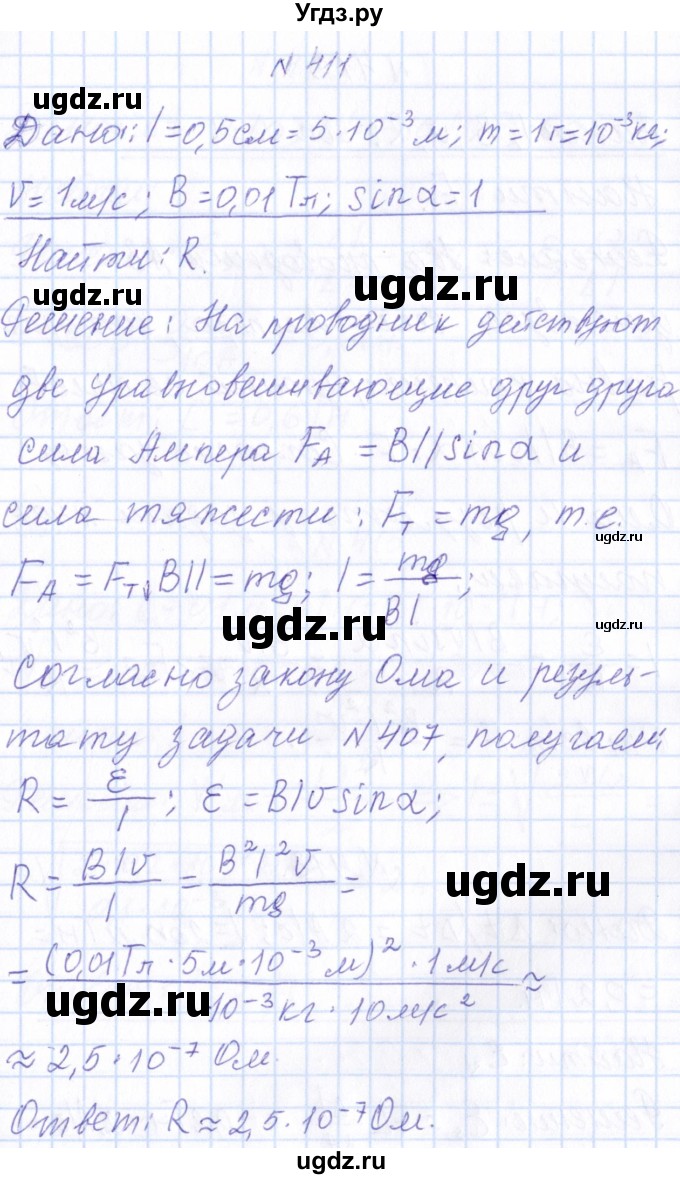 Угдз.ру
N 411
ugdz.ru
Дано: l=0,5см=5·10⁻³м; m=1г=10⁻³кг;
v=1м/с; B=0,01Тл; sinα=1
ugdz.ru
Найти: R.
ugdz.ru
ugdz.ru
Решение: На проводник действуют
две уравновешивающие друг друга
сила Ампера F_A = BIlsinα и
сила тяжести: F_т = mg, т.е.
ugdz.ru
F_A = F_т, BIl=mg; I=mg/Bl;
ugdz.ru
Согласно закону Ома и резуль-
тату задачи N407, получаем:
R = ε/I; ε = Blvsinα;
R = Blv/I = B²l²v/mg =
ugdz.ru
= (0,01Тл·5м·10⁻³м)²·1м/с / 10⁻³кг·10м/с² ≈
ugdz.ru
≈ 2,5·10⁻⁷ Ом.
ugdz.ru
Ответ: R≈2,5·10⁻⁷Ом.
ugdz.ru